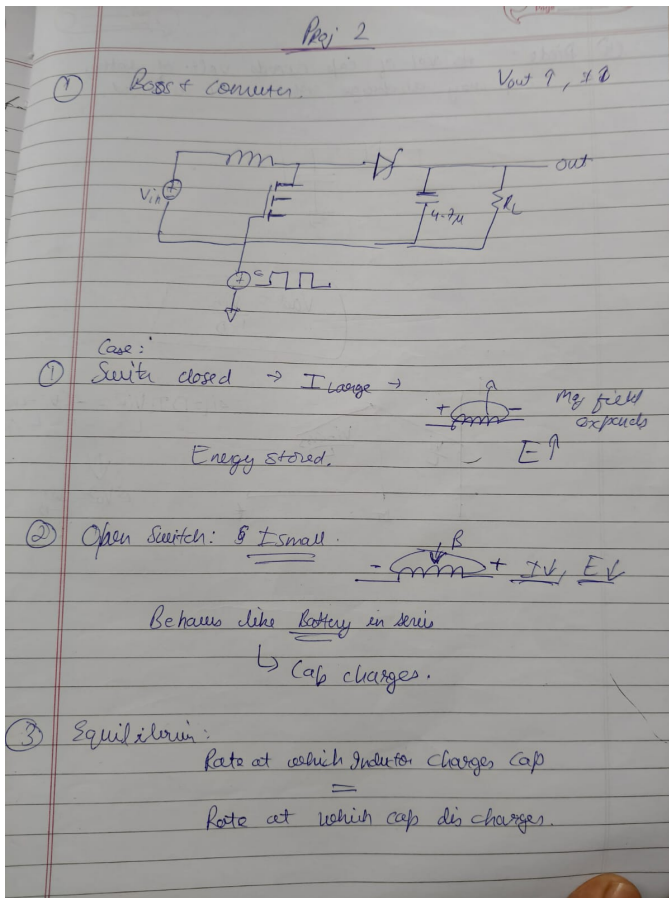 Proj 2
① Boost converter. Vout ↑, I↓
Vin
out
4.7μ
RL
Case:
① Switch closed → I Large →
+ -
Mg field
expands
Energy stored. E↑
② Open Switch: I small.
B
- + I↓, E↓
Behaves like Battery in series
↳ Cap charges.
③ Equilibrium:
Rate at which Inductor charges cap
=
Rate at which cap discharges.